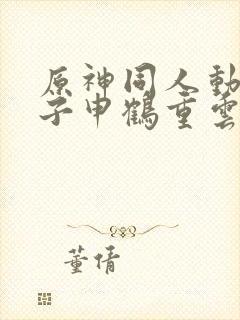 原神同人動
子申鶴重雲
董倩